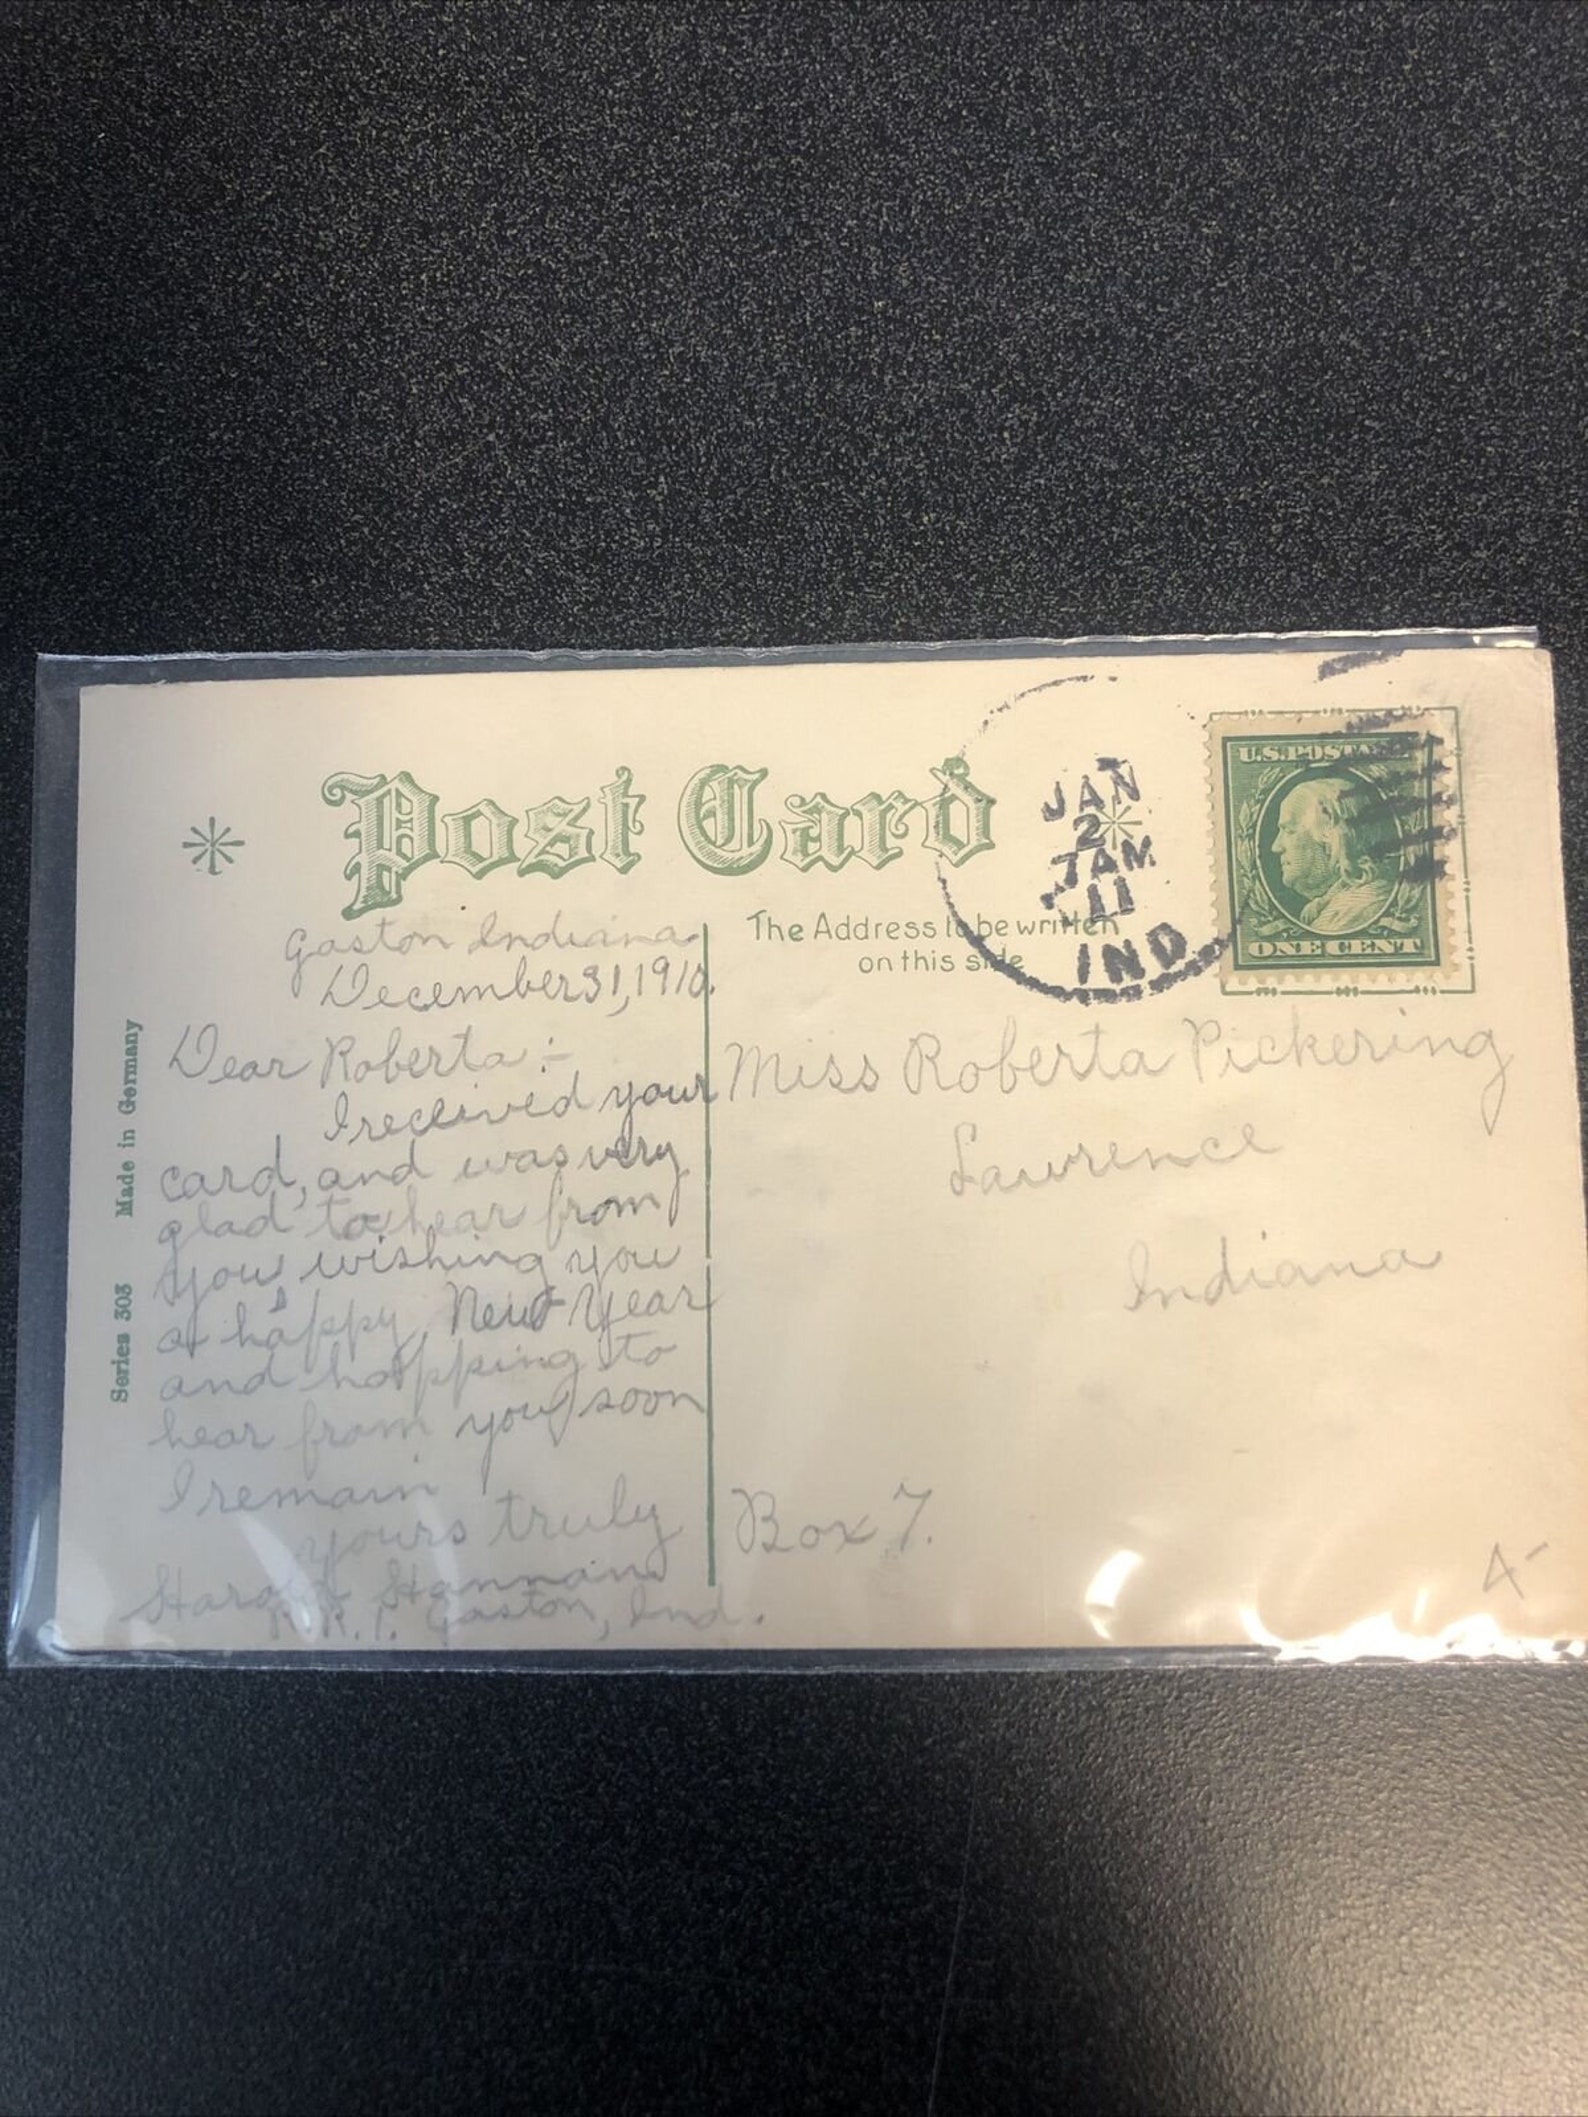 Post Card
Gaston Indiana
December 31, 1910.
Dear Roberta:-
I received your
card, and was very
glad to hear from
you wishing you
a happy, New Year
and hopping to
hear from you soon
I remain
yours truly
Harold Hannan
R.R.1. Gaston, Ind.
Series 303 Made in Germany
JAN
2
7AM
11
IND
U.S.POSTA
ONE CENT
The Address to be written
on this side
Miss Roberta Pickering
Lawrence
Indiana
Box 7.
4-